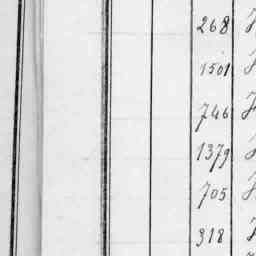 268
1501
746
1379
705
318